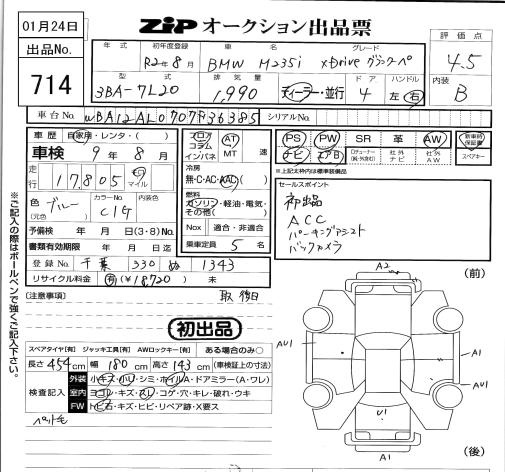 01月24日
ZIP オークション出品票
出品No.
714
年式 初年度登録 車名 グレード
R2年8月 BMW M235i xDrive グランクーペ
評価点
4.5
型式 排気量 ドア ハンドル
3BA-7L20 1,990 ディーラー・並行 4 左 右
内装
B
車台No. WBA12AL0707F36385 シリアルNo.
車歴 自家用・レンタ・( )
車検 9年 8月
走行 17,805 km マイル
色 (元色) ブルー カラーNo. C1G 内装色
予備検 年 月 日(3・8)No.
書類有効期限 年 月 日迄
登録No. 千葉 330 ぬ 1343
リサイクル料金 有(¥18,720) 未
フロア コラム インパネ AT MT 速
冷房
無・C・AC・AAC
燃料
ガソリン・軽油・電気・その他( )
Nox 適合・非適合
乗車定員 5 名
PS PW SR 革 AW
ナビ エアB 社外ナビ 社外AW
新車時保証書
スペアキー
※上記太枠内は標準装備品
セールスポイント
初出品
ACC
パーキングアシスト
バックカメラ
※ご記入の際はボールペンで強くご記入下さい。
[注意事項] 取 後日
初出品
スペアタイヤ[有] ジャッキ工具[有] AWロックキー[有] ある場合のみ○
長さ 454 cm 幅 180 cm 高さ 143 cm (車検証上の寸法)
検査記入
外装 小キズ・小凹・シミ・ホイルA・ドアミラー(A・ワレ)
室内 ヨゴレ・キズ・スレ・コゲ・穴・キレ・破れ・ウキ
FW トビ石・キズ・ヒビ・リペア跡・X要ス
ペット毛
(前)
A2
AU1
A1
A1
AU1
U1
A1
(後)